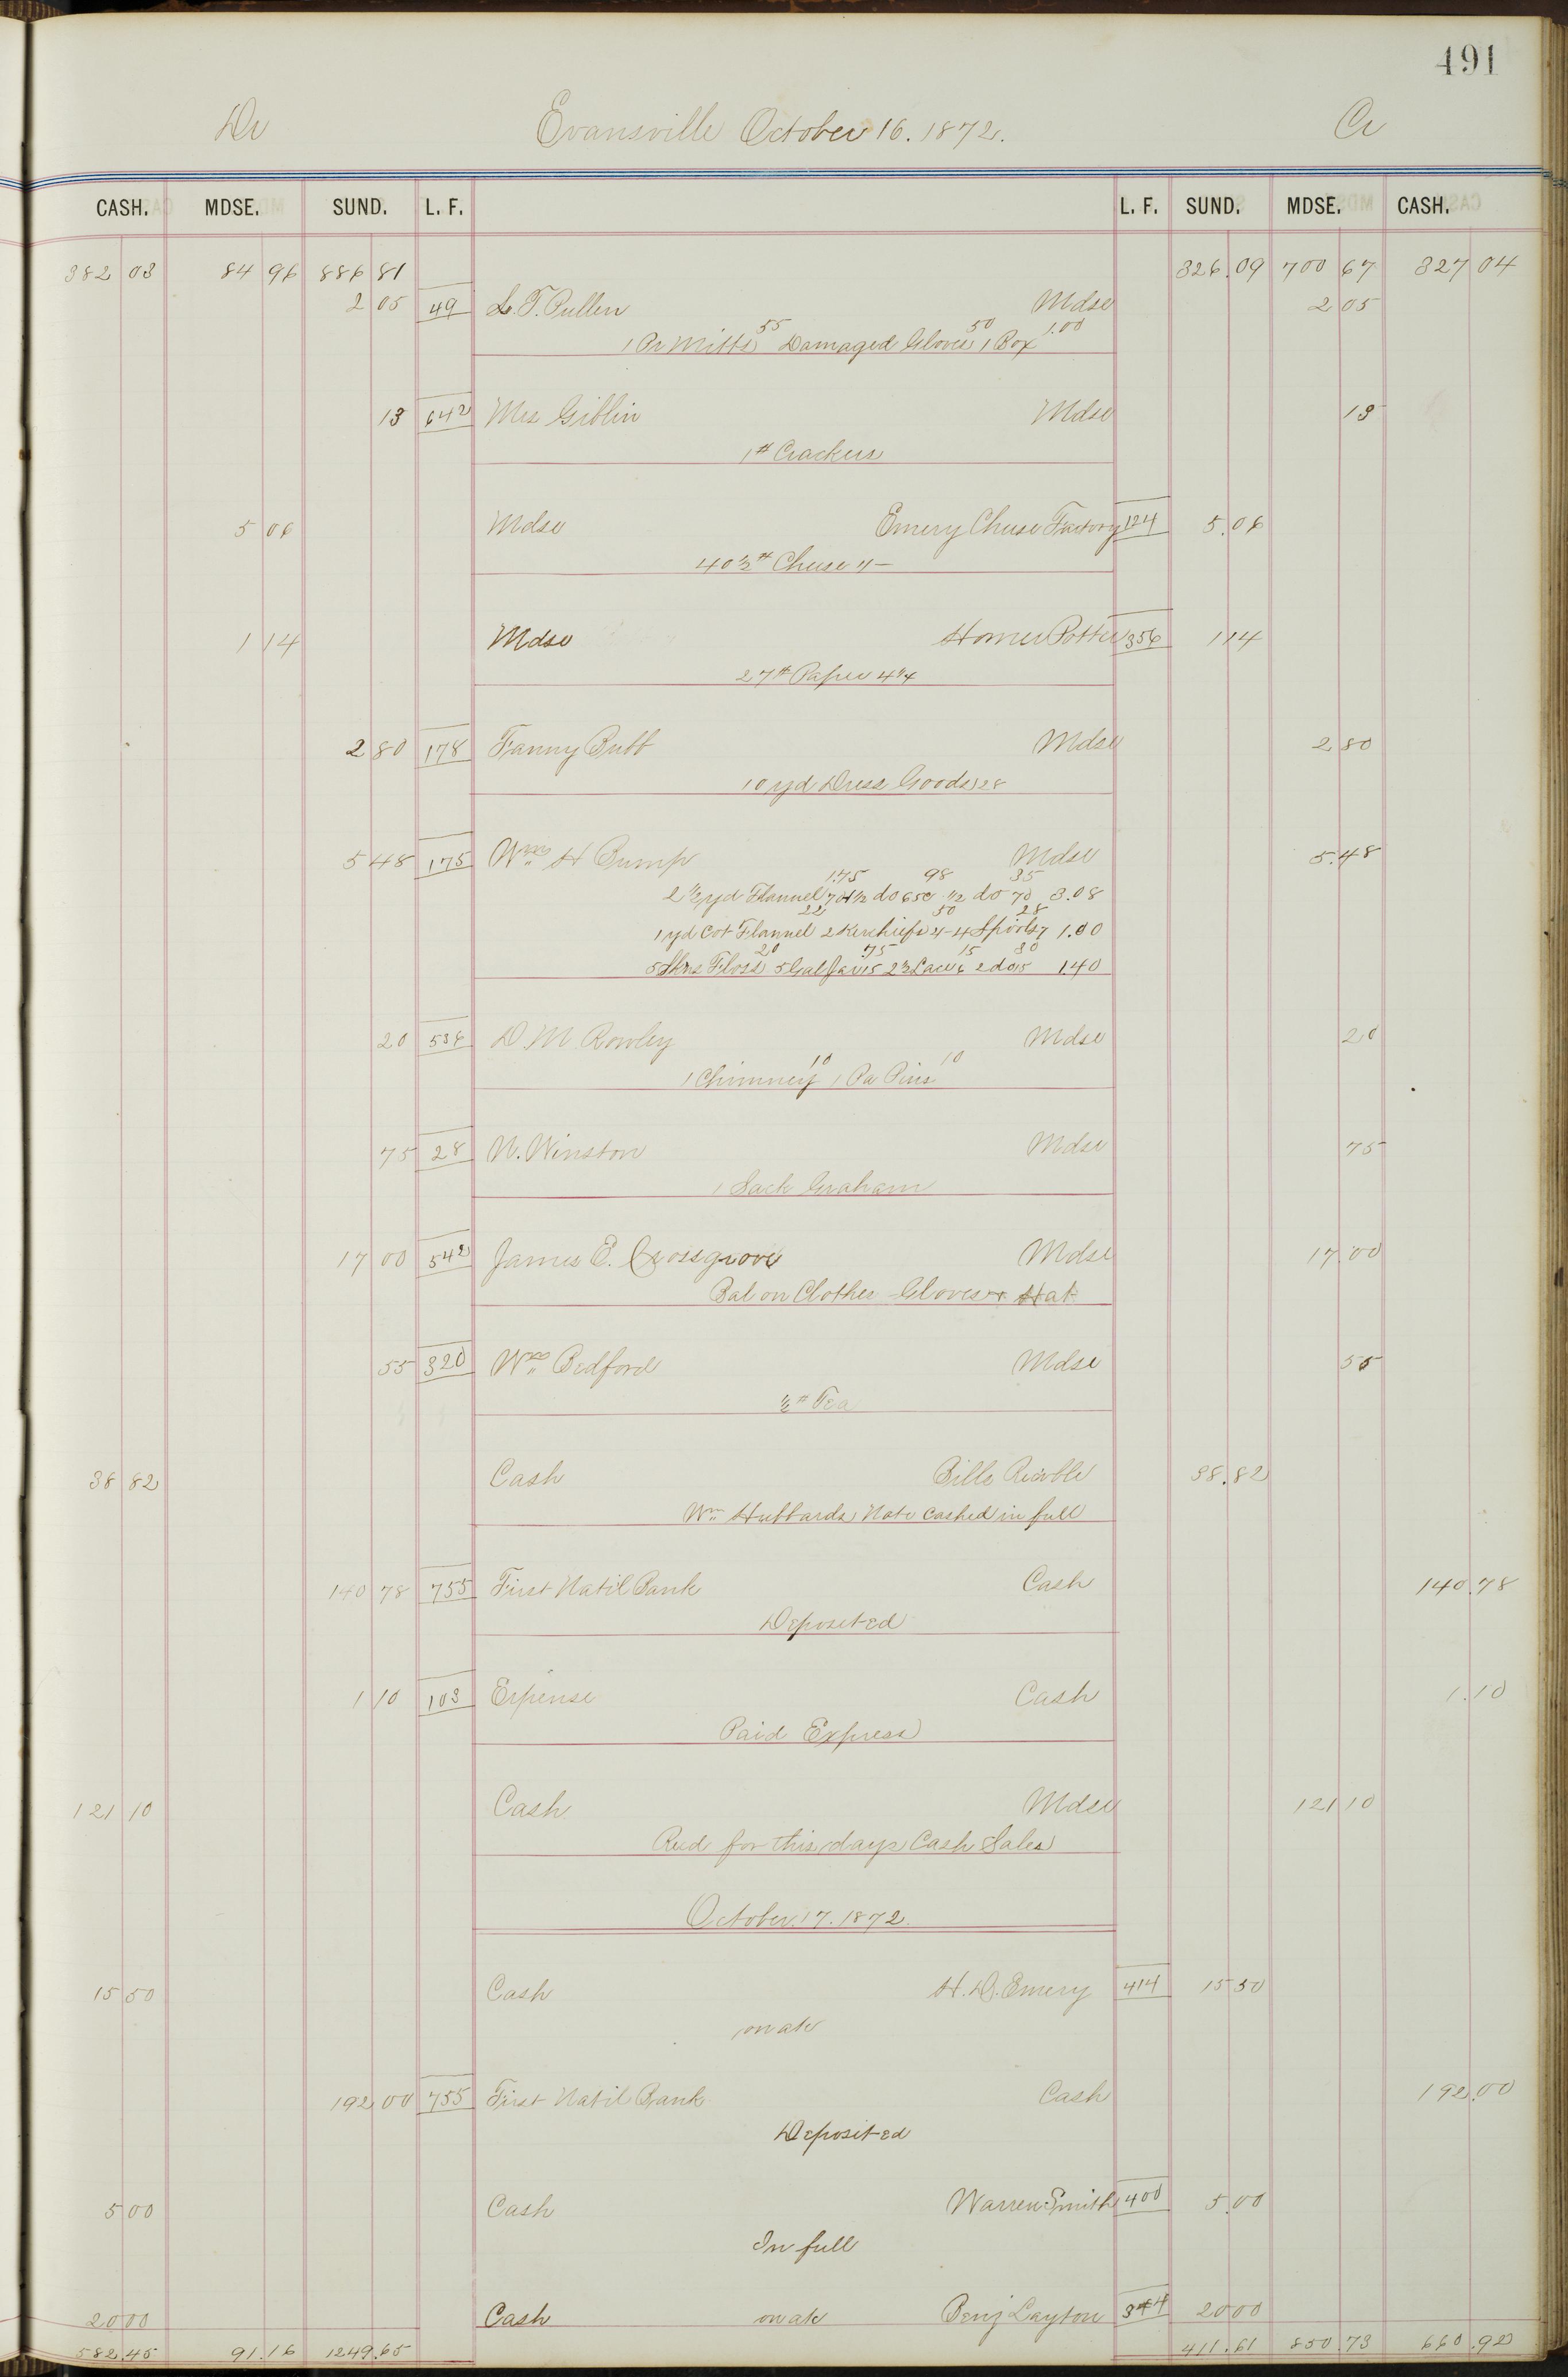 491
Dr Evansville October 16. 1872. Cr
CASH. MDSE. SUND. L. F. L. F. SUND. MDSE. CASH.
382 03 84 96 886 81 326.09 700 67 327 04
2 05 49 L. T. Pullen Mdse 2 05
1 Pr Mitts 55 Damaged Gloves 50 1 Box 1.00
13 642 Mrs Giblin Mdse 13
1# Crackers
5 06 Mdse Emery Cheese Factory 124 5.06
40½# Cheese
1 14 Mdse Homer Potter 356 1 14
27# Paper 4¼
2 80 178 Fanny Bubb Mdse 2 80
10 yd Dress Goods 28
5 48 175 Wm H Bump Mdse 5.48
1.75 98 35
2½ yd Flannel 70 1½ do 65c ½ do 70 3.08
22 50 28
1 yd Cot Flannel 2 Kerchiefs 4 Spools 7 1.00
20 75 15 30
5 Skns Floss 5 Gal Jar 15 2½ Lace 6 2 do 15 1.40
20 536 D. M. Rowley Mdse 20
1 Chimney 10 1 Pa Pins 10
75 28 N. Winston Mdse 75
1 Sack Graham
17 00 542 James E. Crossgrove Mdse 17.00
Bal on Clothes Gloves & Hat
55 320 Wm Bedford Mdse 55
½# Tea
38 82 Cash Bills Recivble 38.82
Wm Hubbards Note cashed in full
140 78 755 First Natil Bank Cash 140.78
Deposited
1 10 103 Expense Cash 1.10
Paid Express
121 10 Cash Mdse 121 10
Recd for this days Cash Sales
October 17. 1872.
15 50 Cash H. D. Emery 414 15 50
on ac
192 00 755 First Natil Bank Cash 192.00
Deposited
5 00 Cash Warren Smith 400 5.00
In full
20 00 Cash on ac Benj Layton 344 20 00
582.45 91.16 1249.65 411.61 850.73 660.92